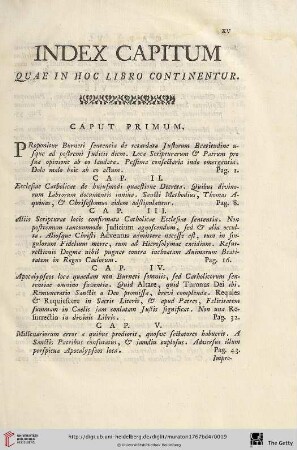 XV
INDEX CAPITUM
QUAE IN HOC LIBRO CONTINENTUR.
CAPUT PRIMUM.
PRoponitur Burneti sententia de retardata Justorum Beatitudine us-
que ad postremi Judicii diem. Loca Scripturarum & Patrum pro
sua opinione ab eo laudata. Pessima consectaria inde emergentia.
Dolo malo heic ab eo actum. Pag. 1.
CAP. II.
Ecclesiae Catholicae de hujusmodi quaestione Decreta. Quibus divino-
rum Librorum documentis innixa. Sancti Methodius, Thomas A-
quinas, & Chrysostomus eidem adstipulantur. Pag. 8.
CAP. III.
Aliis Scripturae locis confirmata Catholicae Ecclesiae sententia. Non
postremum tantummodo Judicium agnoscendum, sed & alia occul-
ta. Aliosque Christi Adventus admittere necesse est, tum in singu-
lorum Fidelium morte, tum ad Hierosolymae excidium. Resur-
rectionis Dogma nihil pugnat contra inchoatam Animarum Beati-
tatem in Regno Caelorum. Pag. 16.
CAP. IV.
Apocalypseos loca quaedam non Burneti somniis, sed Catholicorum sen-
tentiae omnino faventia. Quid Altare, quid Thronus Dei ibi.
Remuneratio Sanctis a Deo promissa, brevi complenda. Requies
& Requiescere in Sacris Literis, & apud Patres, Felicitatem
summam in Caelis jam collatam Justis significat. Non una Re-
surrectio in divinis Libris. Pag. 32.
CAP. V.
Millenariorum error a quibus productus, quosve sectatores habuerit. A
Sanctis Patribus confutatus, & jamdiu explosus. Adversus illum
perspicua Apocalypseos loca. Pag. 43.
Impro-
UNIVERSITÄTS-
BIBLIOTHEK
HEIDELBERG
http://digi.ub.uni-heidelberg.de/diglit/muratori1767bd4/0019
© Universitätsbibliothek Heidelberg
The Getty